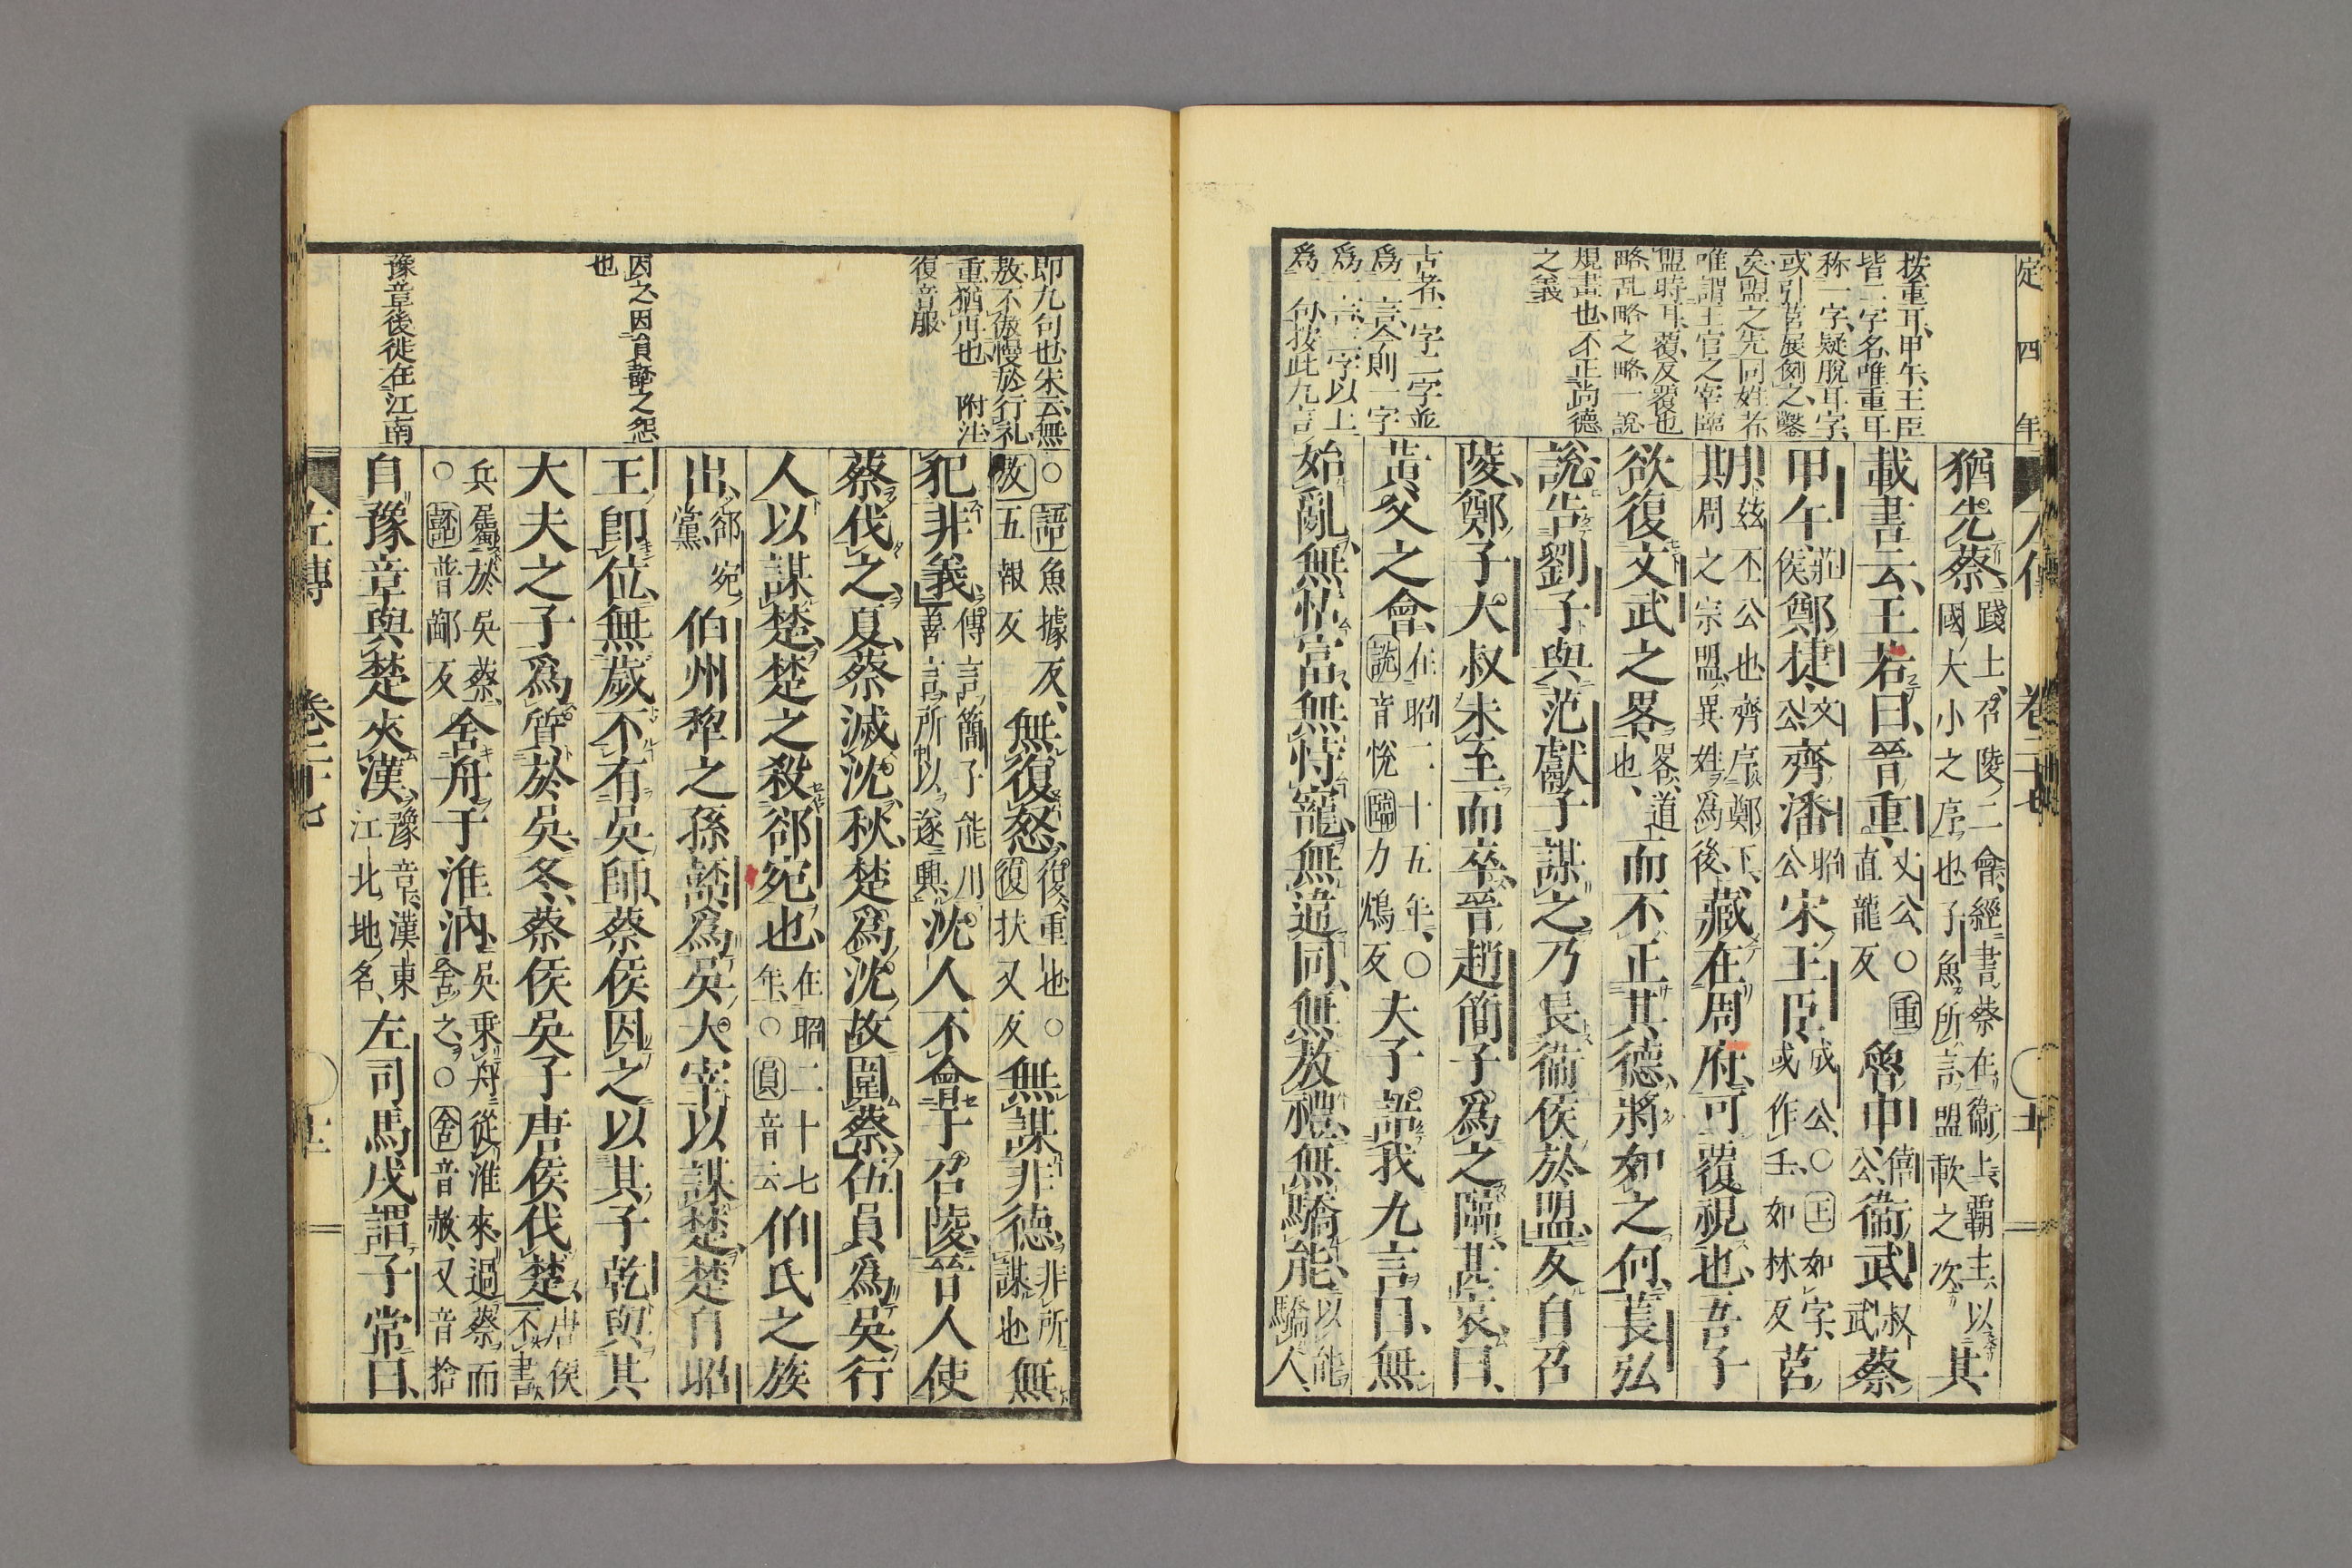 定四年
按重耳、甲午、王臣
皆二字名、唯重耳
称一字、疑脫耳字、
或引莒展例之、鑿
矣、盟之先同姓者、
唯謂王官之宰臨
盟時耳、覆反覆也
略、乱略之略、一說
規畫也、不正尚德
之義
古者、一字二字並
爲一言、今則一字
爲一言、二字以上
爲一句、按此九言
猶先蔡、踐土、召陵、二會、經書蔡在衞上、霸主以國大小之序也、子魚所言盟歃之次、其
載書云、王若曰、晉重、文公、○重直龍反魯申、僖公衞武、叔武蔡
甲午、莊侯鄭捷、文公齊潘、昭公宋王臣、成公、○王如字、或作壬、如林反莒
期、茲丕公也、齊序鄭下、周之宗盟、異姓爲後、藏在周府、可覆視也、吾子
欲復文武之畧、畧、道也、而不正其德、將如之何、萇弘
說、告劉子、與范獻子謀之、乃長衞侯於盟、反自召
陵、鄭子大叔未至而卒、晉趙簡子爲之臨、甚哀、曰、
黃父之會、在昭二十五年、○說音悅臨力鴆反夫子語我九言曰、無
始亂、無怙富、無恃寵、無違同、無敖禮、無驕能、以能驕人、
即九句也、朱云、無
敖、不傲慢於行礼、
重、猶再也 附注
復音服
因之、因員嚭之怨
也
豫章後徙在江南
○語魚據反、敖五報反無復怒、復、重也○復扶又反無謀非德、非所謀也無
犯非義、傳言簡子能用善言、所以遂興沈人不會于召陵、晉人使
蔡伐之、夏、蔡滅沈、秋、楚爲沈故圍蔡、伍員爲吳行
人以謀楚、楚之殺郤宛也、在昭二十七年、○員音云伯氏之族
出、郤宛黨伯州犂之孫嚭、爲吳大宰以謀楚、楚自昭
王卽位、無歲不有吳師、蔡侯因之、以其子乾與其
大夫之子爲質於吳、冬、蔡侯吳子唐侯伐楚、唐侯不書
兵屬於吳蔡、○嚭普鄙反舍舟于淮汭、吳乘舟從淮來、過蔡而舍之、○舍音赦、又音捨
自豫章與楚夾漢、豫章、漢東江北地名、左司馬戌謂子常曰、
左傳 卷二十七